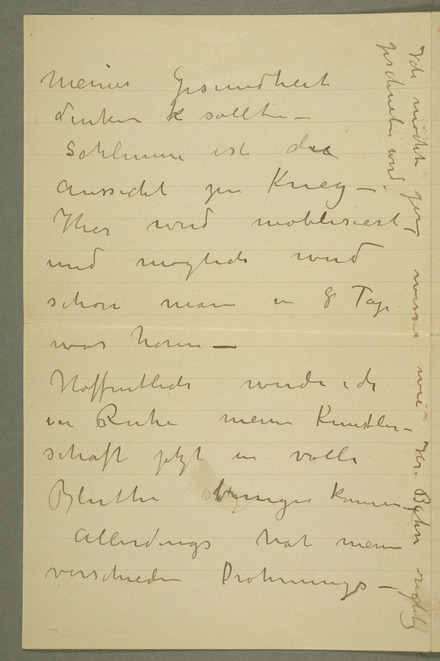 meiner Gesundheit
denken sollte —
Schlimm ist die
Aussicht zum Krieg —
Hier wird moblisiert —
und möglich wird
schon man in 8 Tage
was hören —
Hoffentlich werde ich
in Ruhe meine Künstler-
schaft jetzt in volle
Blüthe bringen können —
Allerdings hat man
verschieden Drohnungs —
Ich möchte gern wissen wie Hr. Bahr
geschrieben wird